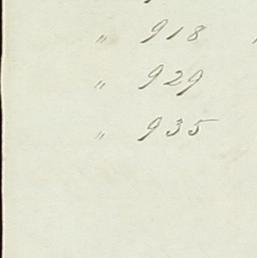 " 918
" 929
" 935